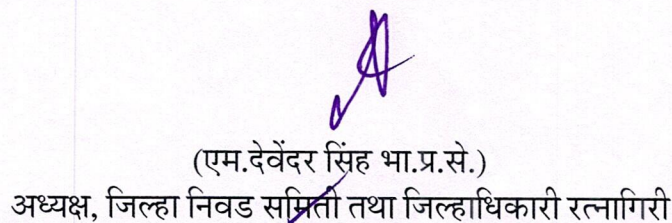 (एम.देवेंदर सिंह भा.प्र.से.)
अध्यक्ष, जिल्हा निवड समिती तथा जिल्हाधिकारी रत्नागिरी